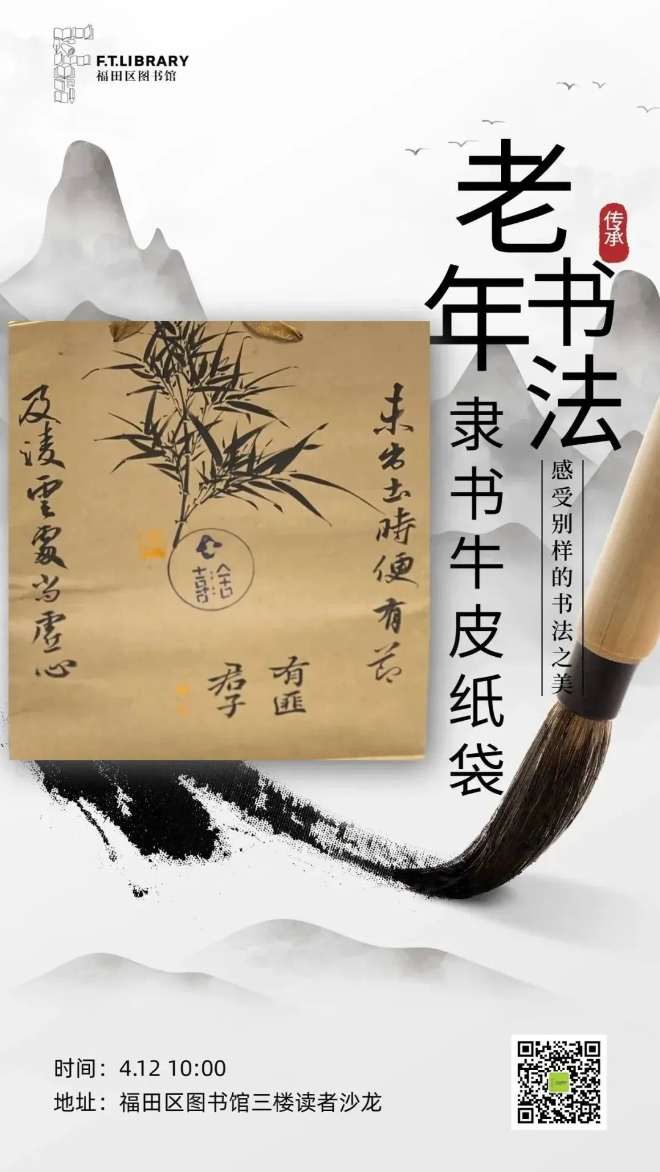 F.T.LIBRARY
福田区图书馆
老年
书法
传承
隶书牛皮纸袋
感受别样的书法之美
未出土時便有节
及凌雲處尚虛心
有匪
君子
时间：4.12 10:00
地址：福田区图书馆三楼读者沙龙